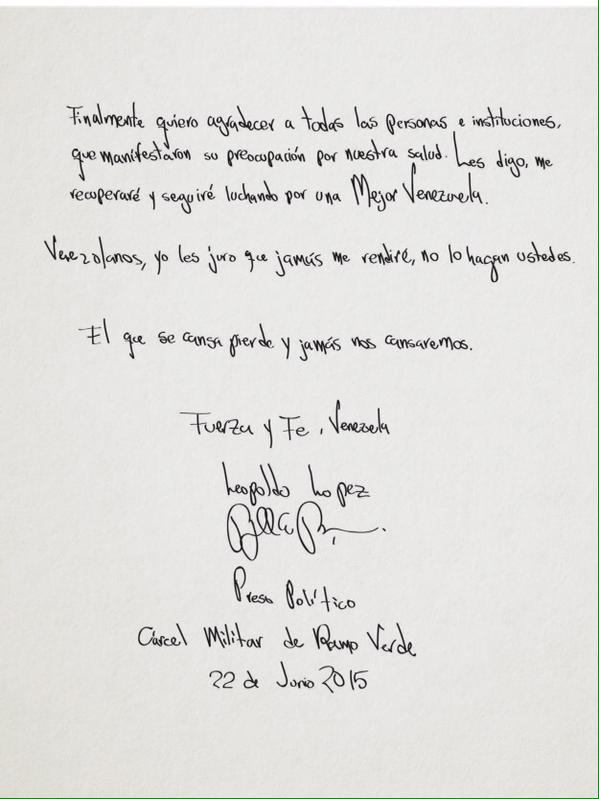 Finalmente quiero agradecer a todas las personas e instituciones,
que manifestaron su preocupación por nuestra salud. Les digo, me
recuperaré y seguiré luchando por una Mejor Venezuela.
Venezolanos, yo les juro que jamás me rendiré, no lo hagan ustedes.
El que se cansa pierde y jamás nos cansaremos.
Fuerza y Fe, Venezuela
Leopoldo Lopez
Preso Político
Cárcel Militar de Ramo Verde
22 de Junio 2015